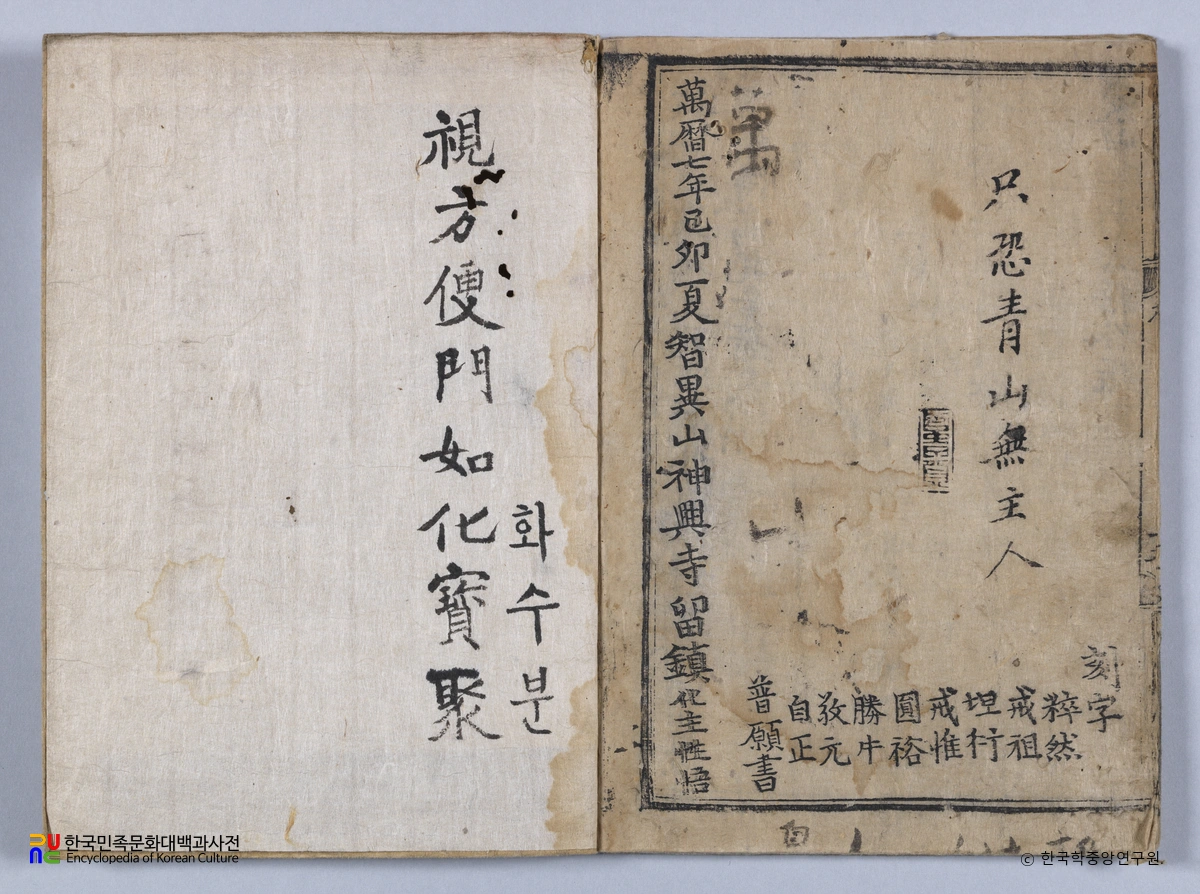 只恐青山無主人
刻字
粹然
戒祖
坦行
戒惟
圓裕
勝牛
敎元
自正
普願書
萬
萬曆七年己卯夏智異山神興寺留鎮化主性悟
화수분
視方便門如化寶聚
한국민족문화대백과사전
Encyclopedia of Korean Culture
© 한국학중앙연구원